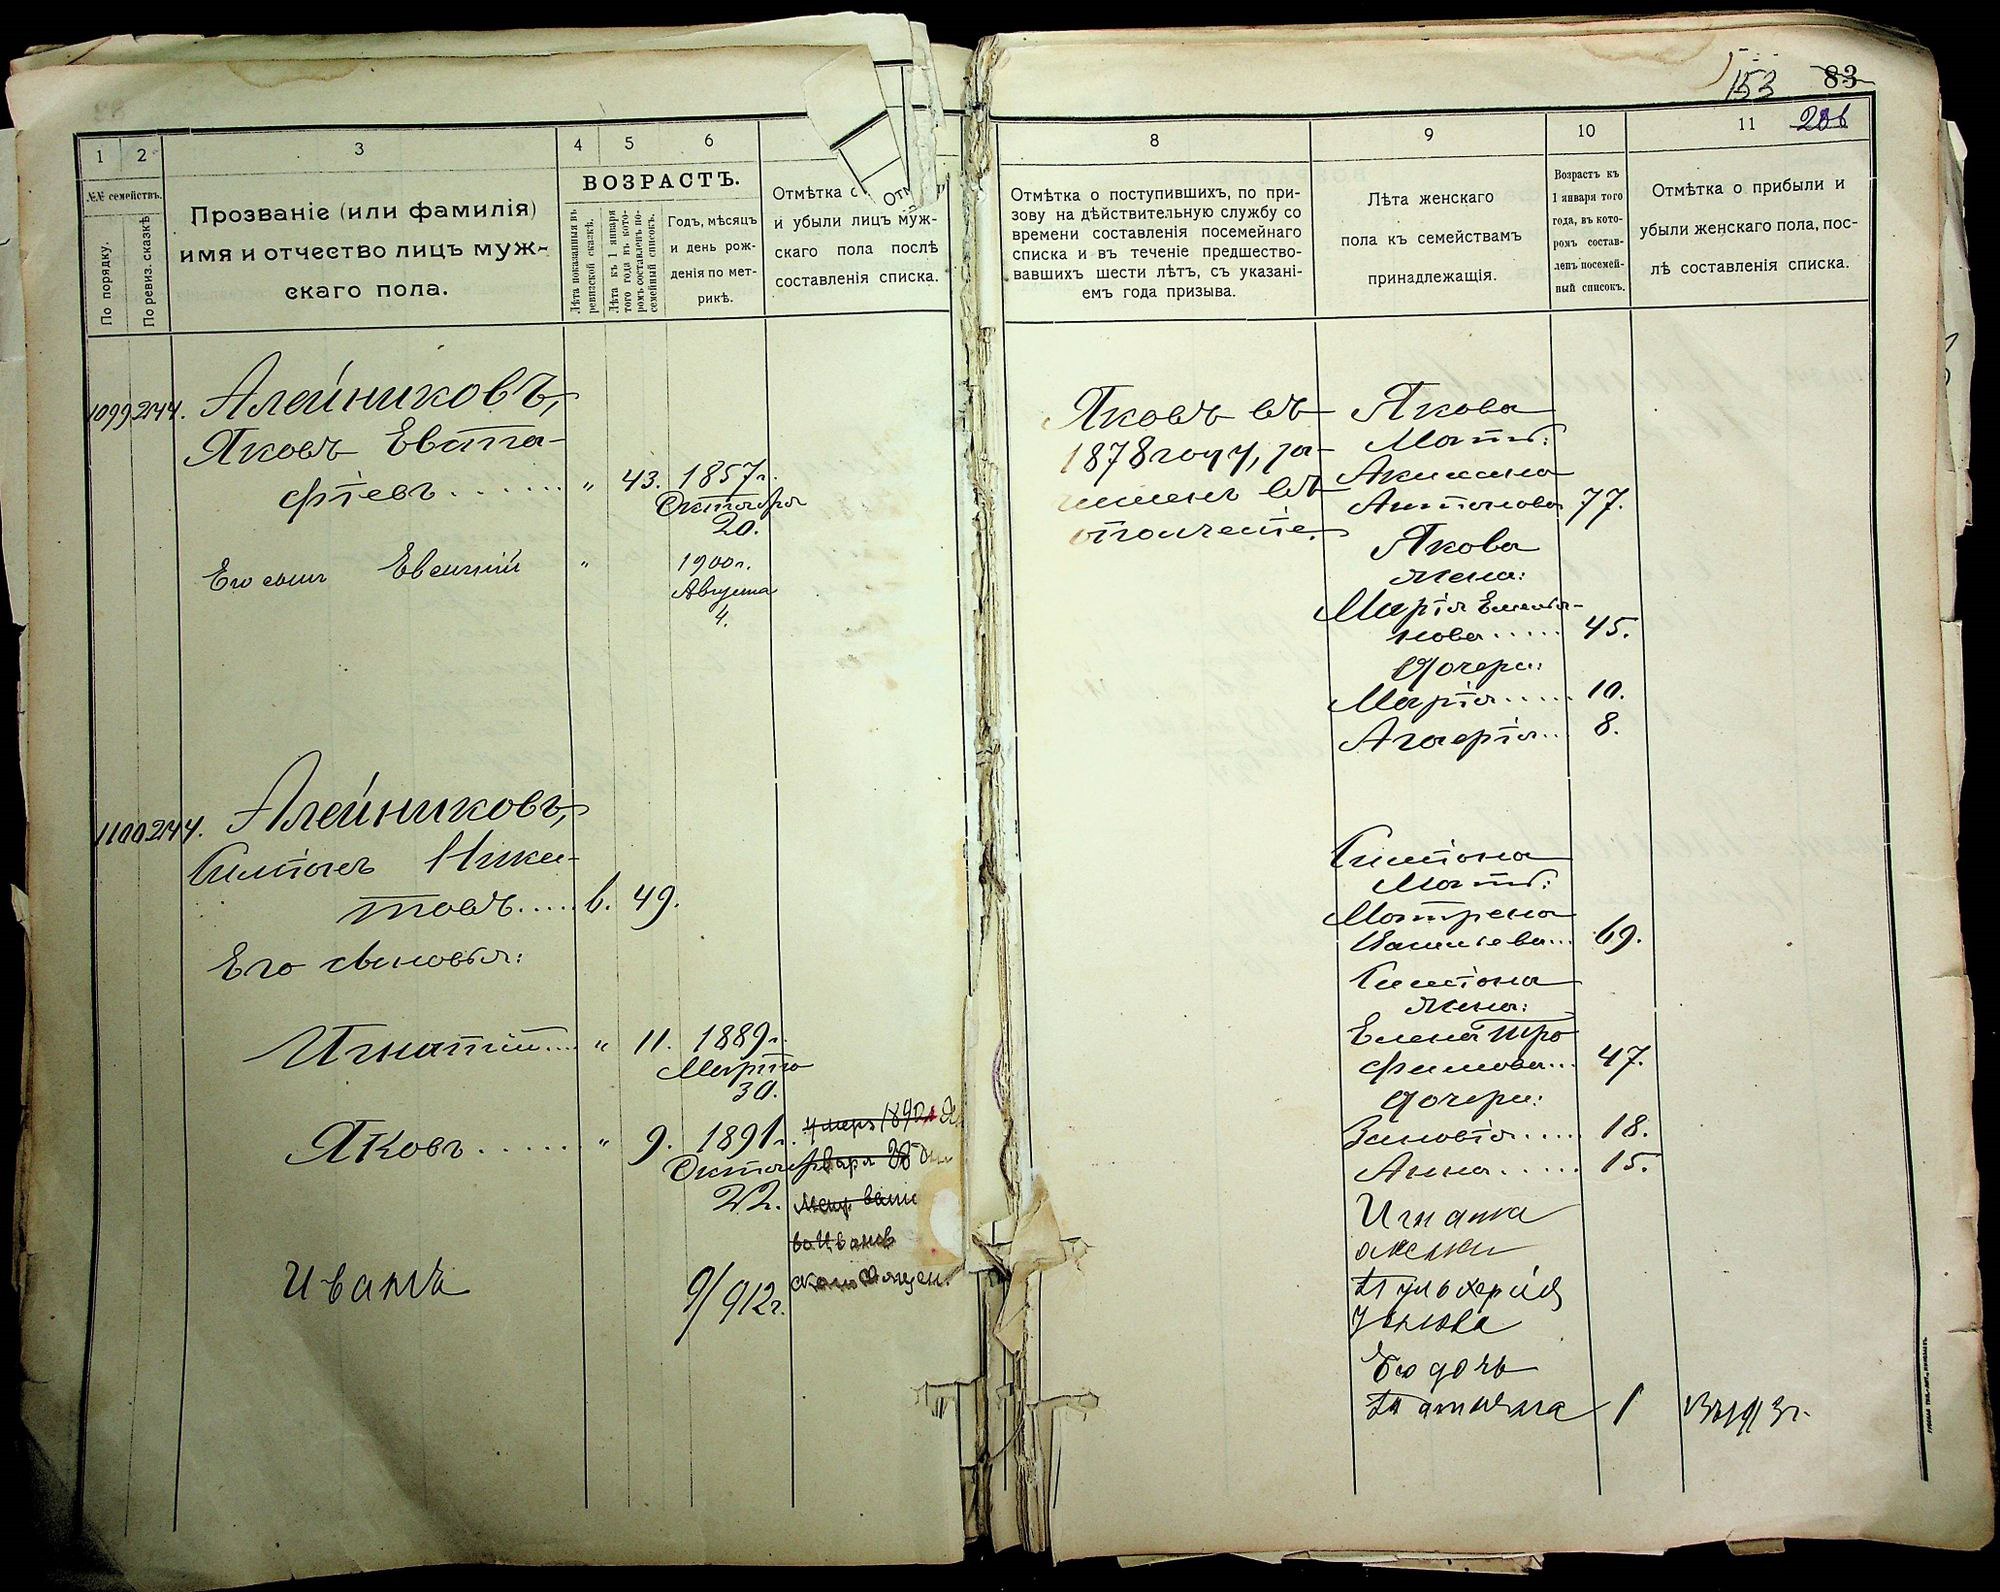 153 83
206
1
2
3
4
5
6
№№ семействъ.
По порядку.
По ревиз. сказкѣ
Прозваніе (или фамилія)
имя и отчество лицъ муж-
скаго пола.
ВОЗРАСТЪ.
Лѣта показанныя въ
ревизской сказкѣ.
Лѣта къ 1 января
того года въ кото-
ромъ составленъ по-
семейный списокъ.
Годъ, мѣсяцъ
и день рож-
денія по мет-
рикѣ.
Отмѣтка о
и убыли лицъ муж-
скаго пола послѣ
составленія списка.
1099 244. Алейниковъ,
Яковъ Евпа-
фіевъ . . . . . . „ 43. 1857 г.
Октября
20.
Его сынъ Евгеній „ 1900 г.
Августа
4.
1100 244. Алейниковъ,
Симіонъ Ники-
товъ . . . . . 6. 49.
Его сыновья:
Игнатій . . . . „ 11. 1889 г.
Марта
30.
Яковъ . . . . . . „ 9. 1891 г.
Октября
22.
умеръ
Иванъ 9/912 г.
8
9
10
11
Отмѣтка о поступившихъ, по при-
зову на дѣйствительную службу со
времени составленія посемейнаго
списка и въ теченіе предшество-
вавшихъ шести лѣтъ, съ указані-
емъ года призыва.
Лѣта женскаго
пола къ семействамъ
принадлежащія.
Возрастъ къ
1 января того
года, въ кото-
ромъ состав-
ленъ посемей-
ный списокъ.
Отмѣтка о прибыли и
убыли женскаго пола, пос-
лѣ составленія списка.
Яковъ въ
1878 году, за-
численъ въ
ополченіе.
Якова
Мать:
Акилина
Антонова 77.
Якова
жена:
Марія Емелья-
нова . . . . . 45.
Дочери:
Марія . . . . . 10.
Агафія . . 8.
Симіона
Мать:
Матрена
Васильева . . . 69.
Симіона
жена:
Елена Тро
фимова . . . 47.
Дочери:
Зиновія . . . . . 18.
Анна . . . . . 15.
Игната
жена
Пульхерія
Ею дочь
Татьяна 1 Въ 1913 г.